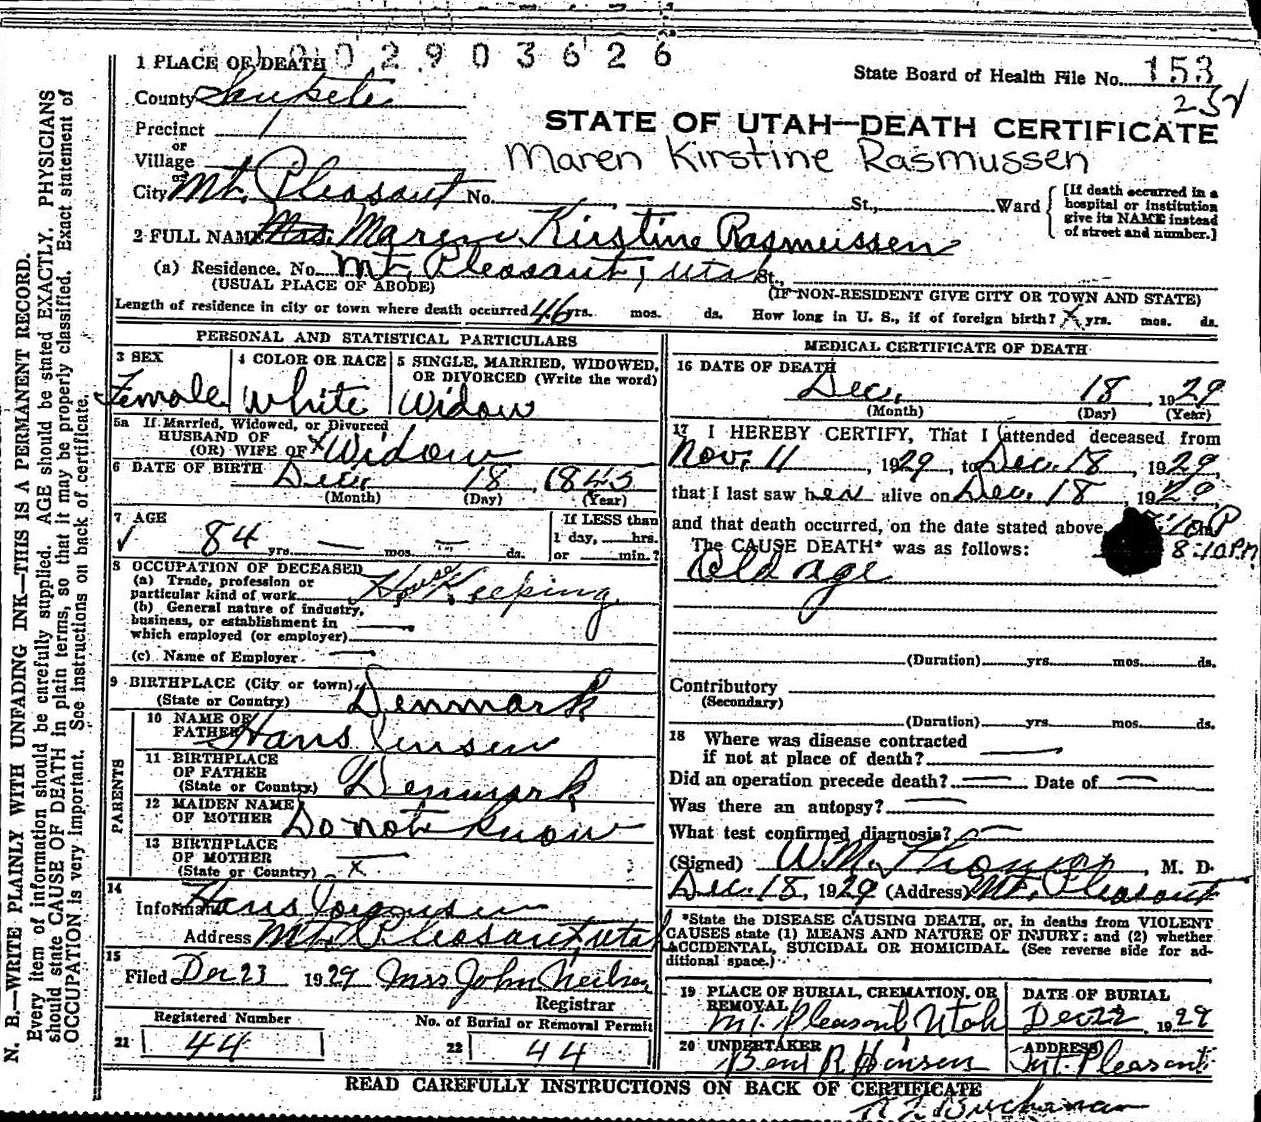 1 0 0 2 9 0 3 6 2 6
1 PLACE OF DEATH
State Board of Health File No. 153
County Sanpete
252
STATE OF UTAH—DEATH CERTIFICATE
Precinct 1
or
Village
Maren Kirstine Rasmussen
or
City Mt. Pleasant No. St., Ward
[If death occurred in a hospital or institution give its NAME instead of street and number.]
2 FULL NAME Mrs. Maren Kirstine Rasmussen
(a) Residence. No. Mt. Pleasant, Utah St.,
(USUAL PLACE OF ABODE) (IF NON-RESIDENT GIVE CITY OR TOWN AND STATE)
Length of residence in city or town where death occurred 46 yrs. mos. ds. How long in U. S., if of foreign birth? x yrs. mos. ds.
PERSONAL AND STATISTICAL PARTICULARS
3 SEX
Female
4 COLOR OR RACE
White
5 SINGLE, MARRIED, WIDOWED,
OR DIVORCED (Write the word)
Widow
5a If Married, Widowed, or Divorced
HUSBAND OF
(OR) WIFE OF x Widow
6 DATE OF BIRTH Dec. 18 1845
(Month) (Day) (Year)
7 AGE
84 yrs. — mos. — ds.
If LESS than
1 day, hrs.
or min.?
8 OCCUPATION OF DECEASED
(a) Trade, profession or
particular kind of work House Keeping
(b) General nature of industry,
business, or establishment in
which employed (or employer)
(c) Name of Employer
9 BIRTHPLACE (City or town)
(State or Country) Denmark
PARENTS
10 NAME OF
FATHER Hans Jensen
11 BIRTHPLACE
OF FATHER
(State or Country) Denmark
12 MAIDEN NAME
OF MOTHER Do not know
13 BIRTHPLACE
OF MOTHER
(State or Country) x
14
Informant Hans
Address Mt. Pleasant, Utah
15
Filed Dec 23 1929 Mrs John Neilsen
Registrar
Registered Number
21 44
No. of Burial or Removal Permit
22 44
MEDICAL CERTIFICATE OF DEATH
16 DATE OF DEATH
Dec. 18 1929
(Month) (Day) (Year)
17 I HEREBY CERTIFY, That I attended deceased from
Nov. 11, 1929, to Dec. 18, 1929,
that I last saw her alive on Dec. 18, 1929
and that death occurred, on the date stated above,
The CAUSE DEATH* was as follows: 8:10 P.M.
Old age
(Duration) yrs. mos. ds.
Contributory
(Secondary)
(Duration) yrs. mos. ds.
18 Where was disease contracted
if not at place of death?
Did an operation precede death? — Date of —
Was there an autopsy?
What test confirmed diagnosis?
(Signed) W.M. , M. D.
Dec. 18, 1929 (Address) Mt. Pleasant
*State the DISEASE CAUSING DEATH, or, in deaths from VIOLENT
CAUSES state (1) MEANS AND NATURE OF INJURY; and (2) whether
ACCIDENTAL, SUICIDAL OR HOMICIDAL. (See reverse side for ad-
ditional space.)
19 PLACE OF BURIAL, CREMATION, OR
REMOVAL
Mt. Pleasant Utah
DATE OF BURIAL
Dec 22 1929
20 UNDERTAKER
R
ADDRESS
Mt. Pleasant
READ CAREFULLY INSTRUCTIONS ON BACK OF CERTIFICATE
Buchanan
N. B.—WRITE PLAINLY WITH UNFADING INK—THIS IS A PERMANENT RECORD.
Every item of information should be carefully supplied. AGE should be stated EXACTLY. PHYSICIANS
should state CAUSE OF DEATH in plain terms, so that it may be properly classified. Exact statement of
OCCUPATION is very important. See instructions on back of certificate.